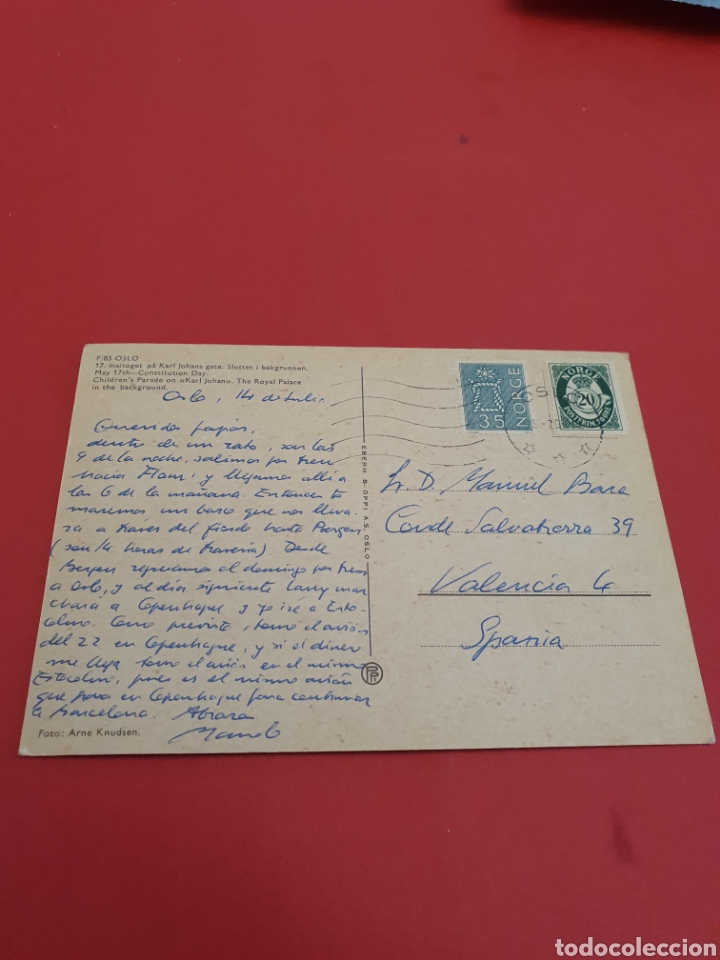 F/85 OSLO
17. maitoget på Karl Johans gate. Slottet i bakgrunnen.
May 17th—Constitution Day.
Children's Parade on «Karl Johan». The Royal Palace
in the background.
Oslo, 14 de Julio
Queridos papás:
dentro de un rato, son las
9 de la noche, salimos por tren
hacia Flam y llegamos allí a
las 6 de la mañana. Entonces to
maremos un barco que nos lleva-
rá a través del fiordo hasta Bergen
(son horas de travesía) Desde
Bergen regresamos el domingo por tren
a Oslo, y al día siguiente Larry mar
chará a Copenhague y yo iré a Esto-
colmo. Como previsto, tomo el avión
del 22 en Copenhague, y si el dinero
me llega tomo el avión en el mismo
Estocolmo, pues es el mismo avión
que para en Copenhague para continuar
a Barcelona. Abrazos
Manolo
Foto: Arne Knudsen.
EBERH. B. OPPI A.S. OSLO
NORGE
35
NORGE
20
Sr. D. Manuel Bara
Conde Salvatierra 39
Valencia 4
Spania
todocoleccion